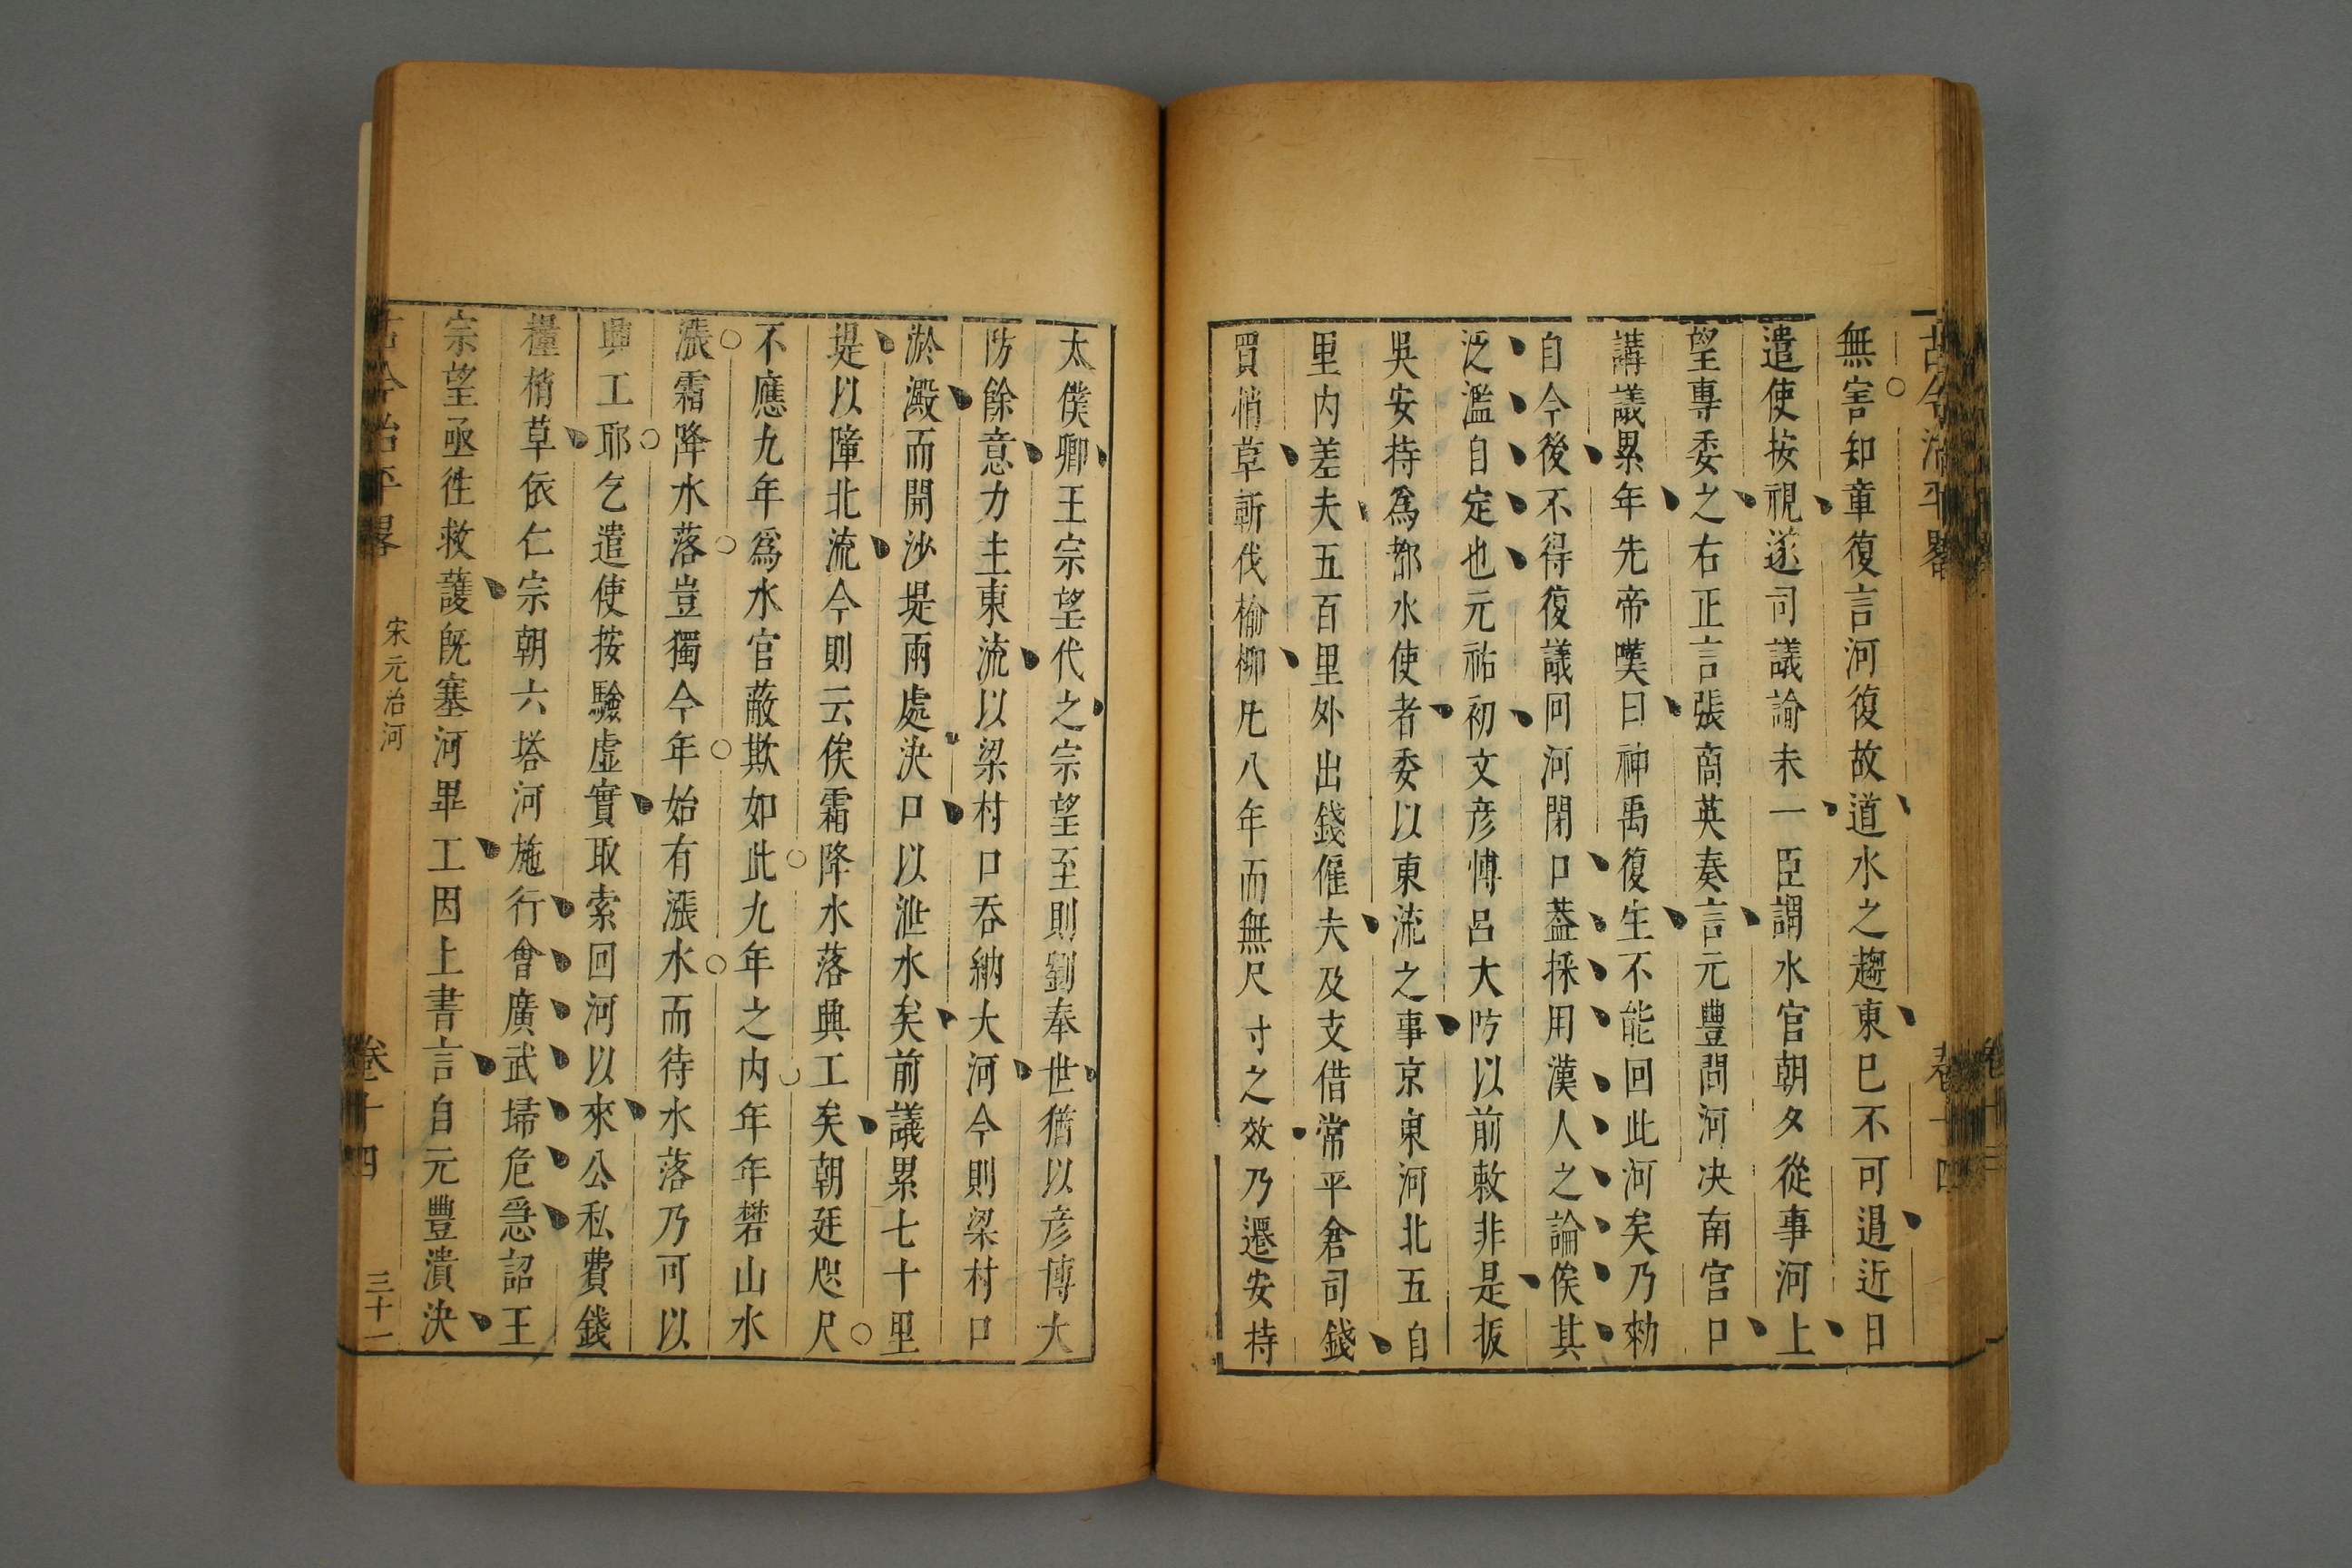 古今治平畧
卷十四
無害知章復言河復故道水之趨東已不可遏近日
遣使按視遂司議論未一臣謂水官朝夕從事河上
望專委之右正言張商英奏言元豐間河决南宫口
講議累年先帝嘆曰神禹復生不能回此河矣乃勑
自今後不得復議回河閉口葢採用漢人之論俟其
泛濫自定也元祐初文彦博呂大防以前敕非是拔
吳安持爲都水使者委以東流之事京東河北五自
里内差夫五百里外出錢僱夫及支借常平倉司錢
買梢草斬伐榆柳凡八年而無尺寸之效乃遷安持
太僕卿王宗望代之宗望至則劉奉世猶以彦博大
防餘意力主東流以梁村口吞納大河今則梁村口
淤澱而開沙堤兩處决口以泄水矣前議累七十里
堤以障北流今則云俟霜降水落興工矣朝廷咫尺
不應九年爲水官蔽欺如此九年之内年年礬山水
漲霜降水落豈獨今年始有漲水而待水落乃可以
興工耶乞遣使按驗虚實取索回河以來公私費錢
糧梢草依仁宗朝六塔河施行會廣武埽危急詔王
宗望亟徃救護旣塞河畢工因上書言自元豐潰决
古今治平畧
宋元治河
卷十四
三十一